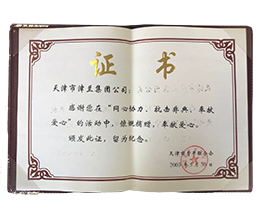 证书
天津市津兰集团公司:
感谢您在“同心协力、抗击非典、奉献
爱心”的活动中,慷慨捐赠,奉献爱心。
颁发此证,留为纪念。
天津市青年联合会
2003年